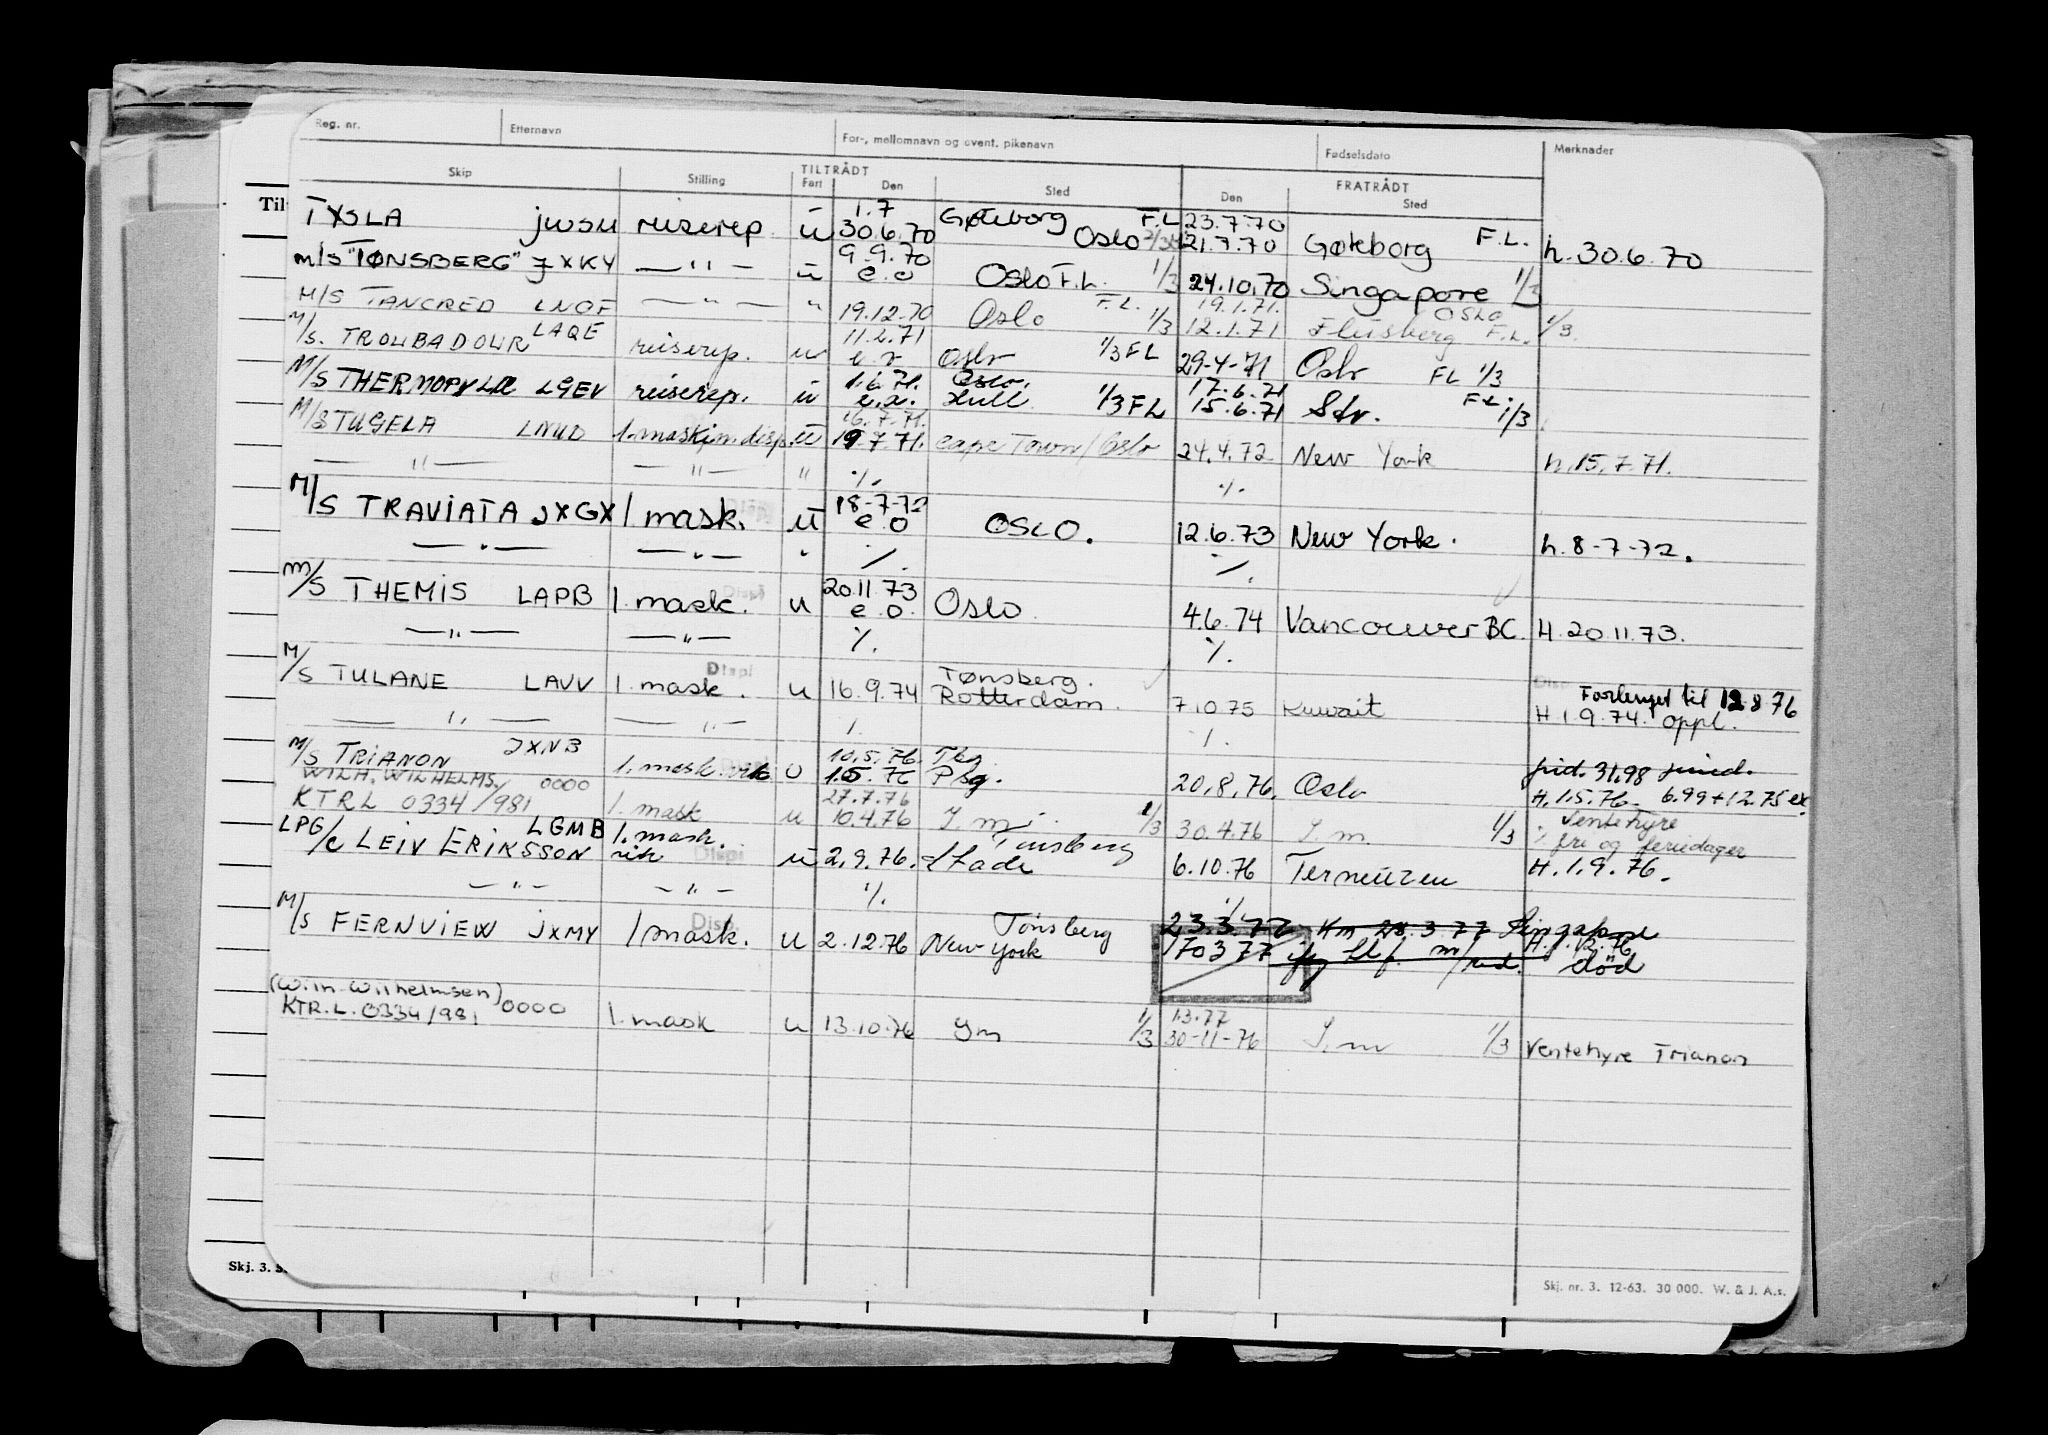 Reg. nr. Etternavn For-, mellomnavn og event. pikenavn Fødselsdato Merknader
TILTRÅDT FRATRÅDT
Skip Stilling Fart Den Sted Den Sted
1.7 Gøteborg F.L 23.7.70
TYSLA JWSU reiserep. u 30.6.70 Oslo 21.7.70 Gøteborg F.L. h.30.6.70
9.9.70
M/S "TØNSBERG" JXKY —"— u e.o Oslo F.L. 1/3 24.10.70 Singapore 1/3
M/S TANCRED LNOF —"— " 19.12.70 Oslo F.L. 1/3 19.1.71. OSLO
12.1.71 F.L. 1/3.
M/S. TROUBADOUR LAQE reiserep. u 11.2.71 Oslo 1/3 FL 29-4-71 Oslo FL 1/3
1.6.71. Oslo. 17.6.71 F.L.
M/S THERMOPYLÆ LGEV reiserep. u Hull 1/3 FL 15.6.71 1/3
16.7.71.
M/S TUGELA LNUD 1.mask m.disp. u 19.7.71. Cape Town/Oslo 24.4.72 New York h.15.7.71.
—"— —"— " ./. ./.
18-7-72
M/S TRAVIATA JXGX 1 mask. u e o OSLO. 12.6.73 New York. h.8-7-72.
—"— —"— " ./. ./.
20.11.73
M/S THEMIS LAPB 1. mask. u e.o. Oslo 4.6.74 Vancouver BC. H.20.11.73.
—"— —"— ./. ./.
Displ Tønsberg. Forlenget til 12.8.76
M/S TULANE LAVV 1. mask. u 16.9.74 Rotterdam. 7.10.75 Kuwait H.1.9.74. oppl.
—"— —"—
10.5.76 Tbg.
M/S TRIANON JXNB 1. mask. vik u 1.5.76 Pbg. 20.8.76. Oslo H.1.5.76. 6.99+12.75 ex.
WILH. WILHELMS. 0000 27.7.76
KTRL 0334/981 1. mask u 10.4.76 1/3 30.4.76 1/3 Ventehyre
./. fri og feriedager
LPG/C LEIV ERIKSSON LGMB 1. mask. vik u 2.9.76. Tønsberg Stade 6.10.76 Terneuzen H.1.9.76.
—"— —"— ./. ./.
Disp. Tønsberg 23.3.77 Singapore
M/S FERNVIEW JXMY 1 mask. u 2.12.76 New York 170377 død
(Wilh. Wilhelmsen)
KTR.L. 0334/981 0000 1. mask u 13.10.76 1/3 1.3.77
30-11-76 1/3 Ventehyre Trianon
Skj. 3. Skj. nr. 3. 12-63. 30 000. W. & J. A.s.